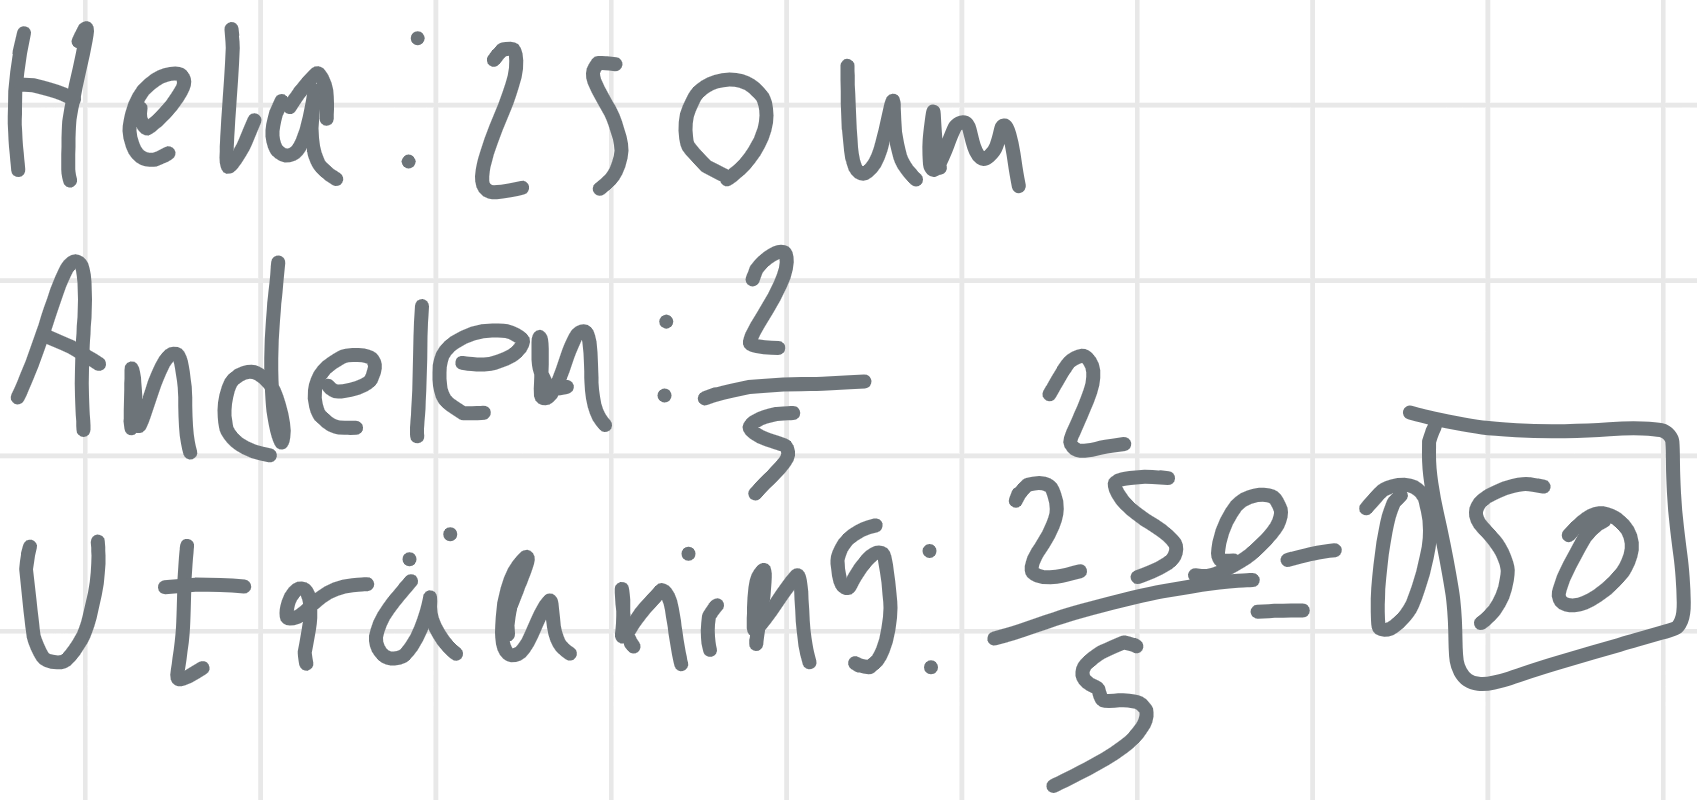 Hela: 250 km
Andelen: 2/5
Uträkning: 2 250/5 = 050